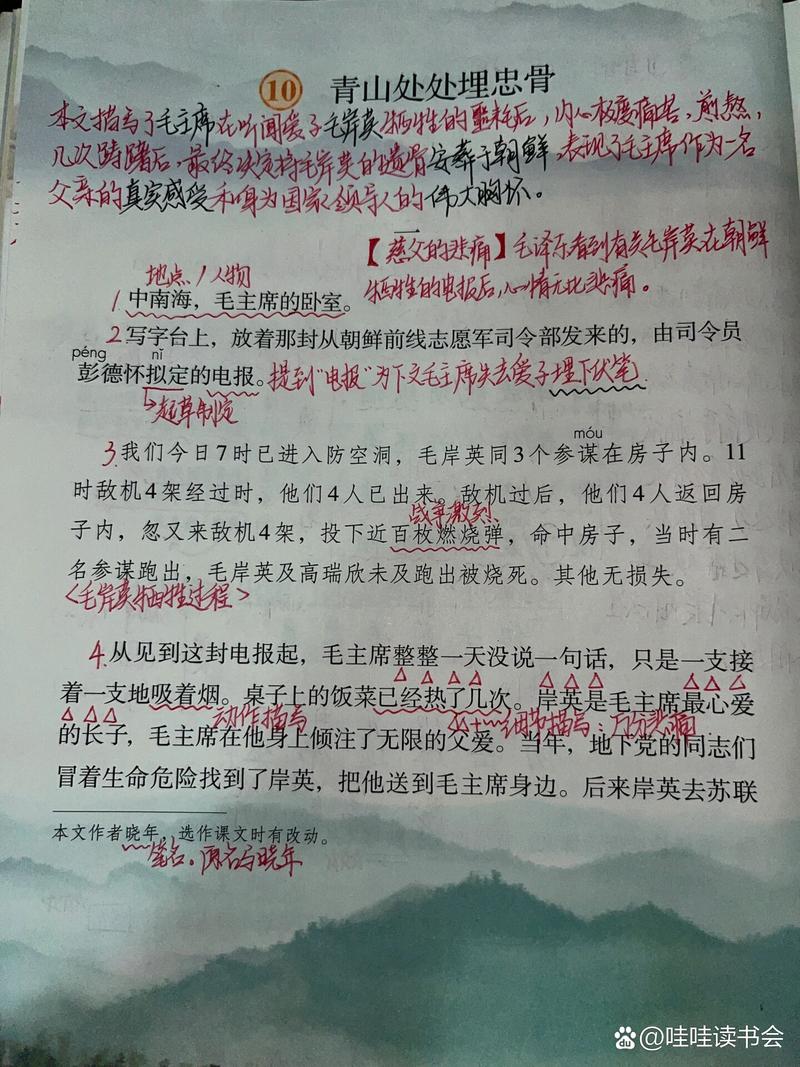 10 青山处处埋忠骨
本文描写了毛主席在听闻爱子毛岸英牺牲的噩耗后，内心极度痛苦、煎熬，
几次踌躇后，最终决定将毛岸英的遗骨安葬于朝鲜，表现了毛主席作为一名
父亲的真实感受和身为国家领导人的伟大胸怀。
一
【慈父的悲痛】毛泽东看到有关毛岸英在朝鲜
牺牲的电报后，心情无比悲痛。
地点/人物
1 中南海，毛主席的卧室。
2 写字台上，放着那封从朝鲜前线志愿军司令部发来的，由司令员
péng nǐ
彭德怀拟定的电报。提到"电报"为下文毛主席失去爱子埋下伏笔
起草制定
móu
3.我们今日7时已进入防空洞，毛岸英同3个参谋在房子内。11
时敌机4架经过时，他们4人已出来。敌机过后，他们4人返回房
战争激烈
子内，忽又来敌机4架，投下近百枚燃烧弹，命中房子，当时有二
名参谋跑出，毛岸英及高瑞欣未及跑出被烧死。其他无损失。
<毛岸英牺牲过程>
4.从见到这封电报起，毛主席整整一天没说一句话，只是一支接
着一支地吸着烟。桌子上的饭菜已经热了几次。岸英是毛主席最心爱
动作描写 细节描写：万分悲痛
的长子，毛主席在他身上倾注了无限的父爱。当年，地下党的同志们
冒着生命危险找到了岸英，把他送到毛主席身边。后来岸英去苏联
本文作者晓年，选作课文时有改动。
笔名。原名马晓年
@哇哇读书会